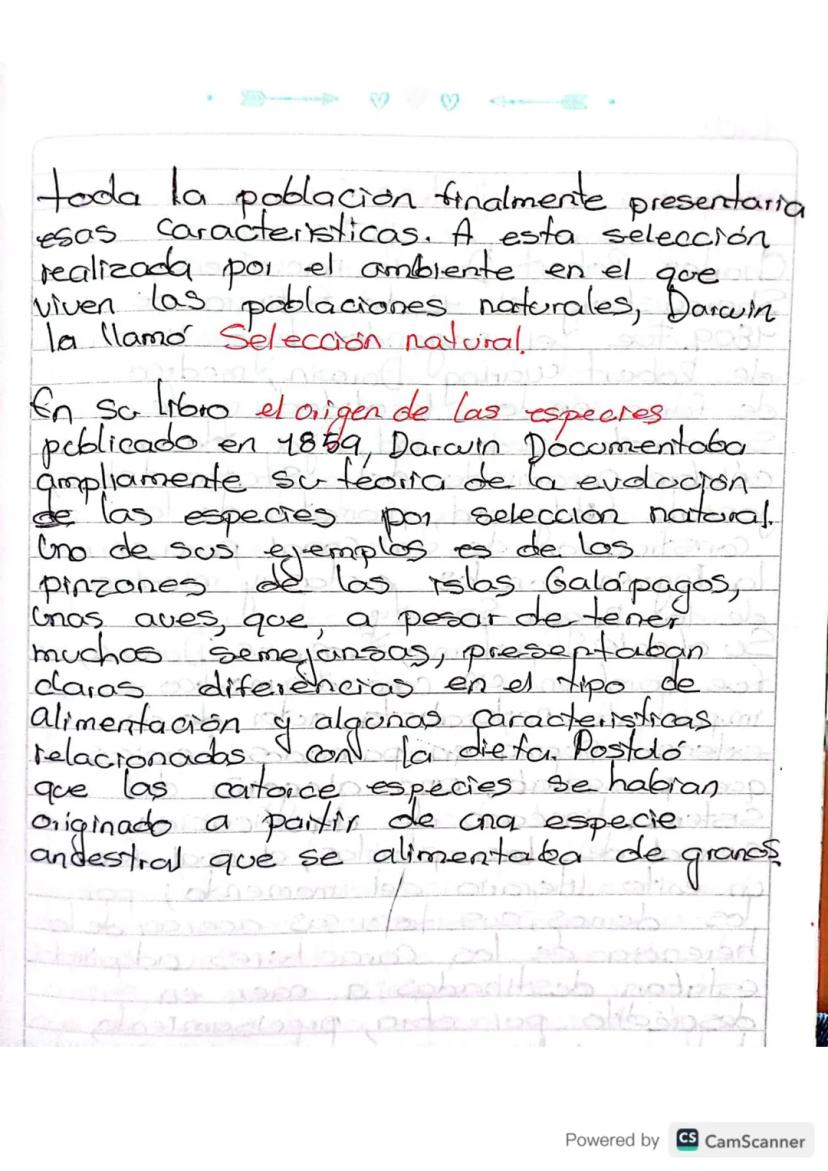 toda la población finalmente presentaria
esas características. A esta selección
realizada por el ambiente en el que
viven las poblaciones naturales, Darwin
la llamó Selección natural.
En su libro el origen de las especies
publicado en 1859, Darwin Documentaba
ampliamente su teoria de la evolución
de las especies por selección natural.
Uno de sus ejemplos es de los
pinzones de las islas Galápagos,
unas aves, que, a pesar de tener
muchas semejansas, presentaban
claras diferencias en el tipo de
alimentación y algunas caracteristicas
relacionadas con la dieta. Postuló
que las catorce especies se habian
originado a partir de una especie
andestral que se alimentaba de granos.
Powered by CS CamScanner